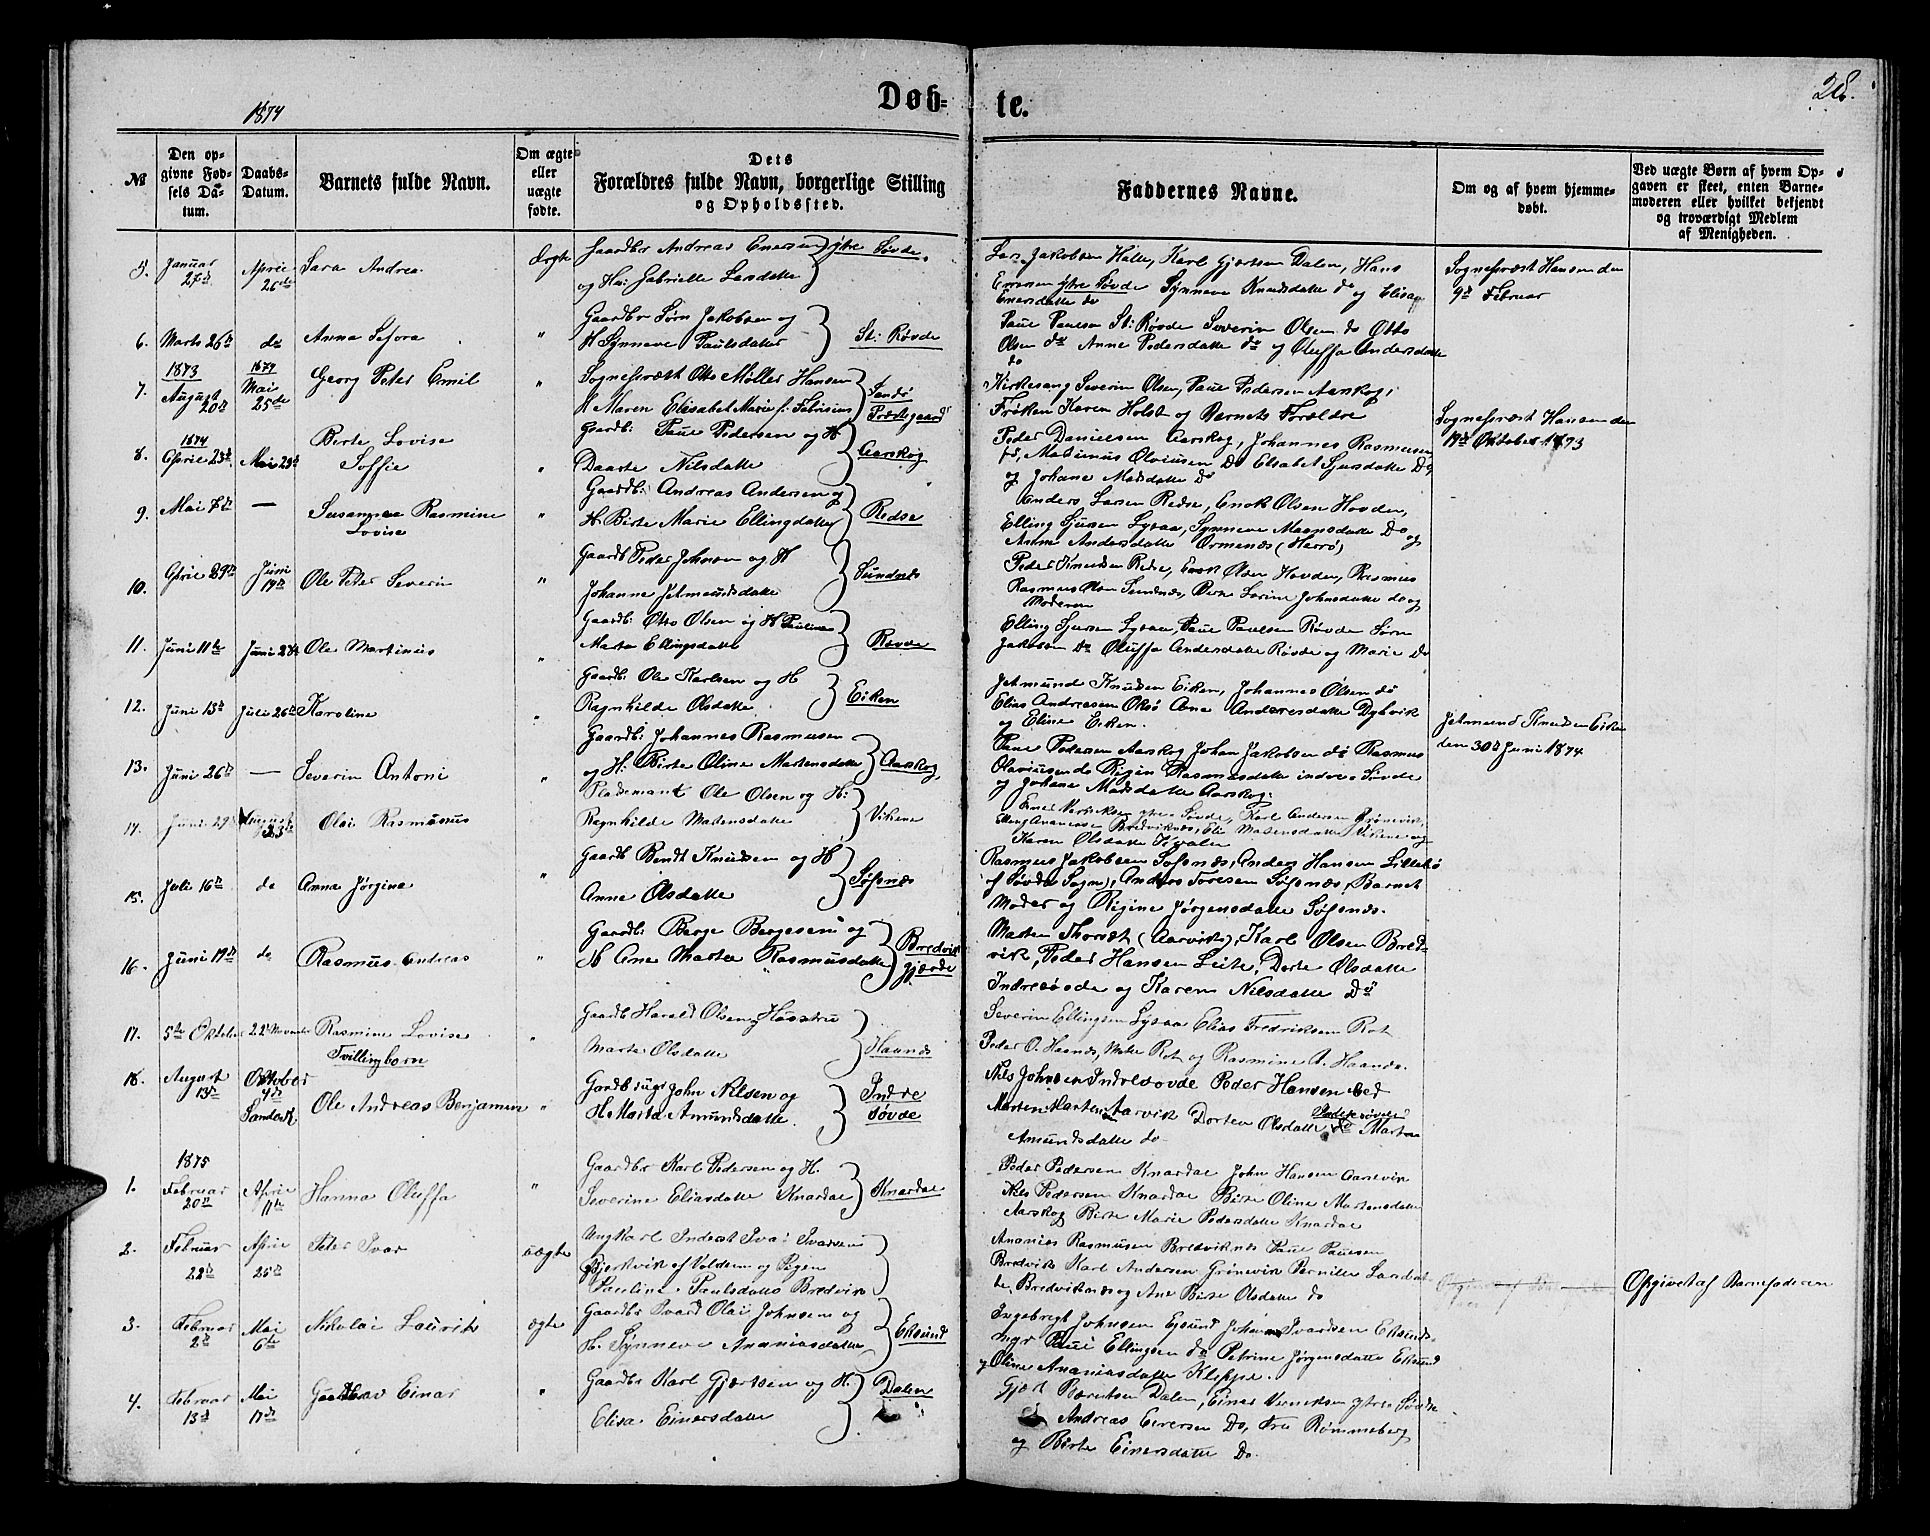 1874
Døb-
te.
28.
№
Den op-
givne Fød-
sels Da-
tum.
Daabs-
Datum.
Barnets fulde Navn.
Om ægte
eller
uægte
fødte.
Dets
Forældres fulde Navn, borgerlige Stilling
og Opholdssted.
Faddernes Navne.
Om og af hvem hjemme-
døbt.
Ved uægte Børn af hvem Op-
gaven er skeet, enten Barne-
moderen eller hvilket bekjendt
og troværdigt Medlem
af Menigheden.
5. Januar 27de April 26de Sara Andrea Ægte
Gaardbr Andreas Enersen ytre Søvde
og H: Gabrielle Larsdatte
Lars Jakobsen Halle, Karl Gjertsen Dalen, Hans
Enersen ytre Søvde Synneve Knudsdatte do og Elisa
Enersdatte do
Sognepræst Hansen den
9de Februar
6. Marts 26de do Anna Sefora "
Gaardbr Sørn Jakobsen og
H Synneve Paulsdatter St: Røvde
Paul Paulsen St: Røvde Severin Olsen do Otto
Olsen do Anne Pedersdatte do og Oluffa Andersdatte
do
7. 1873 August 20de 1874 Mai 25de Georg Peter Emil "
Sognepræst Otto Møller Hansen
H Maren Elisabet Marie f: Fabrisius Sandø Præstegaard
Kirkesang Severin Olsen, Paul Pedersen Aarskog,
Frøken Karen Holst og Barnets Forældre
Sognepræst Hansen den
Oktober 1873
8. 1874 April 23de Mai 29de Birte Lovise
Soffie "
Gaardb: Paul Pedersen og H
Daarte Nilsdatte Aarskog
Peder Danielsen Aarskog, Johannes Rasmussen
Do Elsabet Sjursdatte Do,
og Johane Madsdatte Do
9. Mai 7de — Susanna Rasmine
Lovise "
Gaardb: Andreas Andersen og
H. Birte Marie Ellingdatte Redse
Anders Larsen Redse, Enok Olsen Hovden,
Elling Sjursen Lysaa, Synneve Maansdatte Do og
Anne Andersdatte Ormenæs (Herrø)
10. April 29de Juni 14de Ole Peter Severin "
Gaardb Peder Johnsen og H
Johanne Jetmundsdatte Sundnæs
Peder Knudsen Redse, Enok Olsen Hovden, Rasmus
Rasmusen Sundnæs, Berte Larine Johnsdatte do og
Moderen
11. Juni 11te Juni 24de Ole Martinus "
Gaardb: Otto Olsen og H Pauline
Marta Ellingsdatte Røvde
Elling Sjursen Lysaa, Paul Paulsen Røvde Sørn
Jakobsen Do Oluffa Andersdatte Røvde og Marie Do
12. Juni 13de Juli 26de Karoline "
Gaardb: Ole Karlsen og H
Ragnhilde Olsdatte Eiken
Jetmund Knudsen Eiken, Johannes Olsen do
Elias Andreasen Oksø Ane Andersdatte Dybvik
og Eline Eiken.
Jetmund Knudsen Eiken
den 30de Juni 1874
13. Juni 26de — Severin Antoni "
Gaardb: Johannes Rasmusen
og H: Birte Oline Martensdatte Aarskog
Paul Pedersen Aarskog Johan Jakobsen do Rasmus
do Regin Rasmusdatte indre Søvde
og Johane Madsdatte Aarskog.
14. Juni 29 August 23de Olai Rasmus
Pladsmant Ole Olsen og H:
Ragnhilde Madsensdatte Vikene
Karl Andersen Grønevik,
Bredviknæs, Vikene og
Karen Olsdatte Kvalen
15. Juli 16de do Anna Jørgina "
Gaardb Bendt Knudsen og H
Anne Olsdatte Søfsnæs
Rasmus Jakobsen Søfsnæs, Anders Hansen Lillebø
af Søvde Sogn), Anders Toresen Søfsnæs, Barnet
Moder og Regine Jørgensdatte Søfsnæs.
16. Juni 19de do Rasmus Andreas "
Gaardb: Berge Bergesen og
H Ane Marta Rasmusdatte Bredvik
gjærde
Marten Thorset (Aarvik), Karl Olsen Bred-
vik, Peder Hansen Leite, Dorte Olsdatte
Indresøvde og Karen Nilsdatte Do
17. 5te Oktober 22de November Rasmine Lovise
Tvillingbarn "
Gaardb Harald Olsen og Hustru
Marte Olsdatte Haanæs
Severin Ellingsen Lysaa Elias Fredriksen Rot
Peder O. Haanæs, Rot og Rasmine A. Haanæs.
18. August 13de Oktober 4de Sandøk Ole Andreas Benjamen "
Gaardbruger John Nilsen og
H. Marta Amundsdatte. Indre
Søvde
Nils Johnsen Indresøvde Peder Hansen
Marten Martens Aarvik Dorten Olsdatte do Martna
Indresøvde
Amundsdatte do
1875
1. Februar 20de April 11te Hanna Oluffa "
Gaardbr Karl Pedersen og H.
Severine Eliasdatte Knardal Knardal
Peder Pedersen Knardal John Hansen
Nils Pedersen Knardal Birte Oline Martensdatte
Aarskog Birte Marie Pedersdatte Knardal
2. Februar 22de April 25de Peter Ivar uægte
Ungkarl Inderst Ivar Ivarsen
Bjerkvik af Volden og Pigen
Pauline Paulsdatte Bredvik
Ananias Rasmusen Bredviknæs Paul Paulsen
Bredvik Karl Andersen Grønevik Pernille Larsdat-
te, Bredviknæs og Ane Birte Olsdatte do
Opgivet af Barnefaderen
3. Februar 2de Mai 6te Nikolai Laurits ægte
Gaardbr Ivard Olai Johnsen og
H. Synneve Ananiasdatte Eksund
Ingebrigt Johnsen Eksund Johan Ivardsen Eksund
Paul Ellingsen do Petrine Jørgensdatte Eksund
og Oline Ananiasdatte Kleppe.
4. Februar 13de Mai 17de Gustav Einar "
Gaardbr Karl Gjertsen og H.
Elisa Einersdatte Dalen
Gjert Berntsen Dalen, Einer ytre Søvde
Andreas Einersen Do, Fru Rømmeberg
og Birte Einersdatte Do.